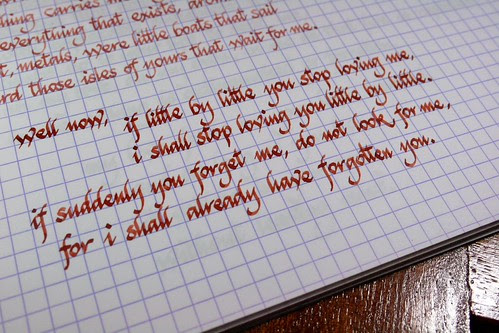 thing carries me
everything that exists,
t, metals, were little boats that sail
rd those isles of yours that wait for me.
well now, if little by little you stop loving me,
i shall stop loving you little by little.
if suddenly you forget me, do not look for me,
for i shall already have forgotten you.